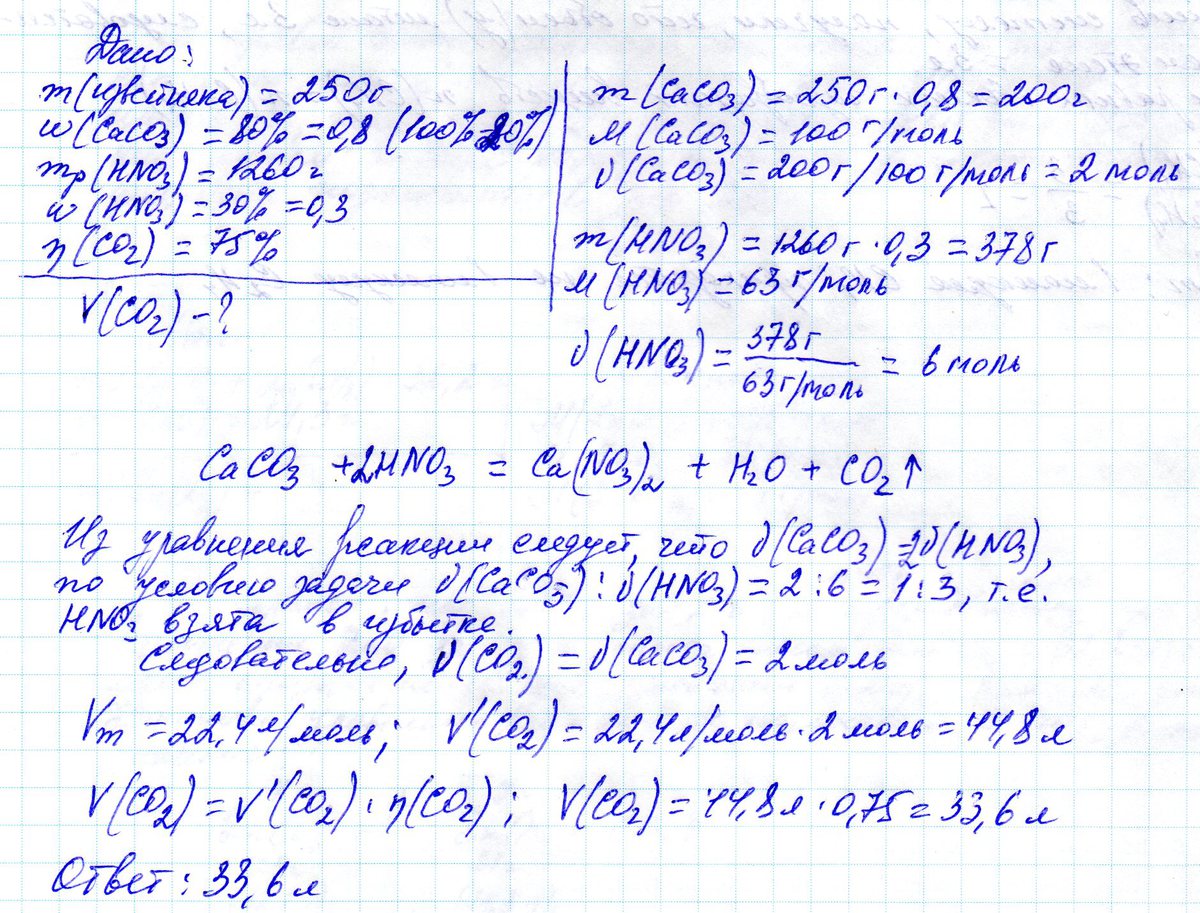 Дано:
m(известняка) = 250г
w(CaCO3) = 80% = 0,8 (100%-20%)
mр(HNO3) = 1260г
w(HNO3) = 30% = 0,3
η(CO2) = 75%
V(CO2) - ?
m(CaCO3) = 250г · 0,8 = 200г
M(CaCO3) = 100 г/моль
ν(CaCO3) = 200г/100 г/моль = 2 моль
m(HNO3) = 1260 г · 0,3 = 378 г
M(HNO3) = 63 г/моль
ν(HNO3) = 378 г / 63 г/моль = 6 моль
CaCO3 + 2HNO3 = Ca(NO3)2 + H2O + CO2↑
Из уравнения реакции следует, что ν(CaCO3) = 1/2 ν(HNO3),
по условию задачи ν(CaCO3) : ν(HNO3) = 2 : 6 = 1 : 3, т.е.
HNO3 взята в избытке.
Следовательно, ν(CO2) = ν(CaCO3) = 2 моль
Vm = 22,4 л/моль; V'(CO2) = 22,4 л/моль · 2 моль = 44,8 л
V(CO2) = V'(CO2) · η(CO2); V(CO2) = 44,8 л · 0,75 = 33,6 л
Ответ: 33,6 л